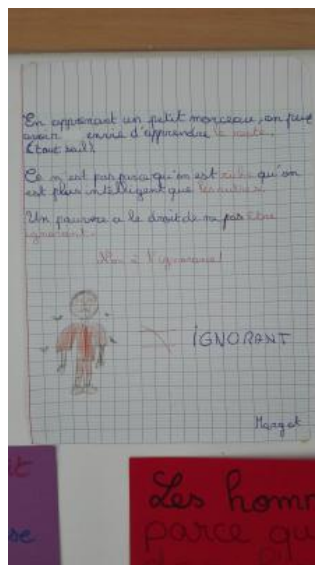 En apprenant un petit morceau, on peut
avoir envie d'apprendre le reste.
(tout seul).
Ce n'est pas parce qu'on est riche qu'on
est plus intelligent que les autres.
Un pauvre a le droit de ne pas être
ignorant.
Non à l'ignorance!
IGNORANT
Margot
Les homm
parce qu
se